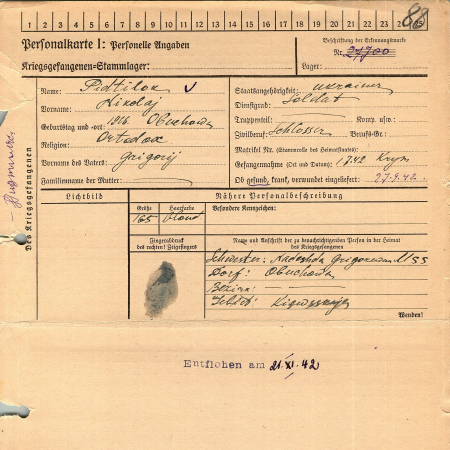 1 2 3 4 5 6 7 8 9 10 11 12 13 14 15 16 17 18 19 20 21 22 23 24 25
88
Personalkarte I: Personelle Angaben
Beschriftung der Erkennungsmarke
Nr. 27700
Kriegsgefangenen-Stammlager:
Lager:
Des Kriegsgefangenen
Name: Pidtilok
Vorname: Nikolaj
Geburtstag und -ort: 1916 Obuchowa
Religion: Ortodox
Vorname des Vaters: Grigorij
Familienname der Mutter:
Staatsangehörigkeit: ukrainer
Dienstgrad: Soldat
Truppenteil: Komp. usw.:
Zivilberuf: Schlosser Berufs-Gr.:
Matrikel Nr. (Stammrolle des Heimatstaates):
Gefangennahme (Ort und Datum): 1.7.42 Krym
Ob gesund, krank, verwundet eingeliefert: 27.9.42.
Lichtbild
Nähere Personalbeschreibung
Größe
Haarfarbe
Besondere Kennzeichen:
165 blond
Fingerabdruck
des rechten! Zeigefingers
Name und Anschrift der zu benachrichtigenden Person in der Heimat
des Kriegsgefangenen
Schwester: Nadeshda
Dorf: Obuchowa
Bezirk: — —
Gebiet:
Wenden!
Entflohen am 21. XI. 42